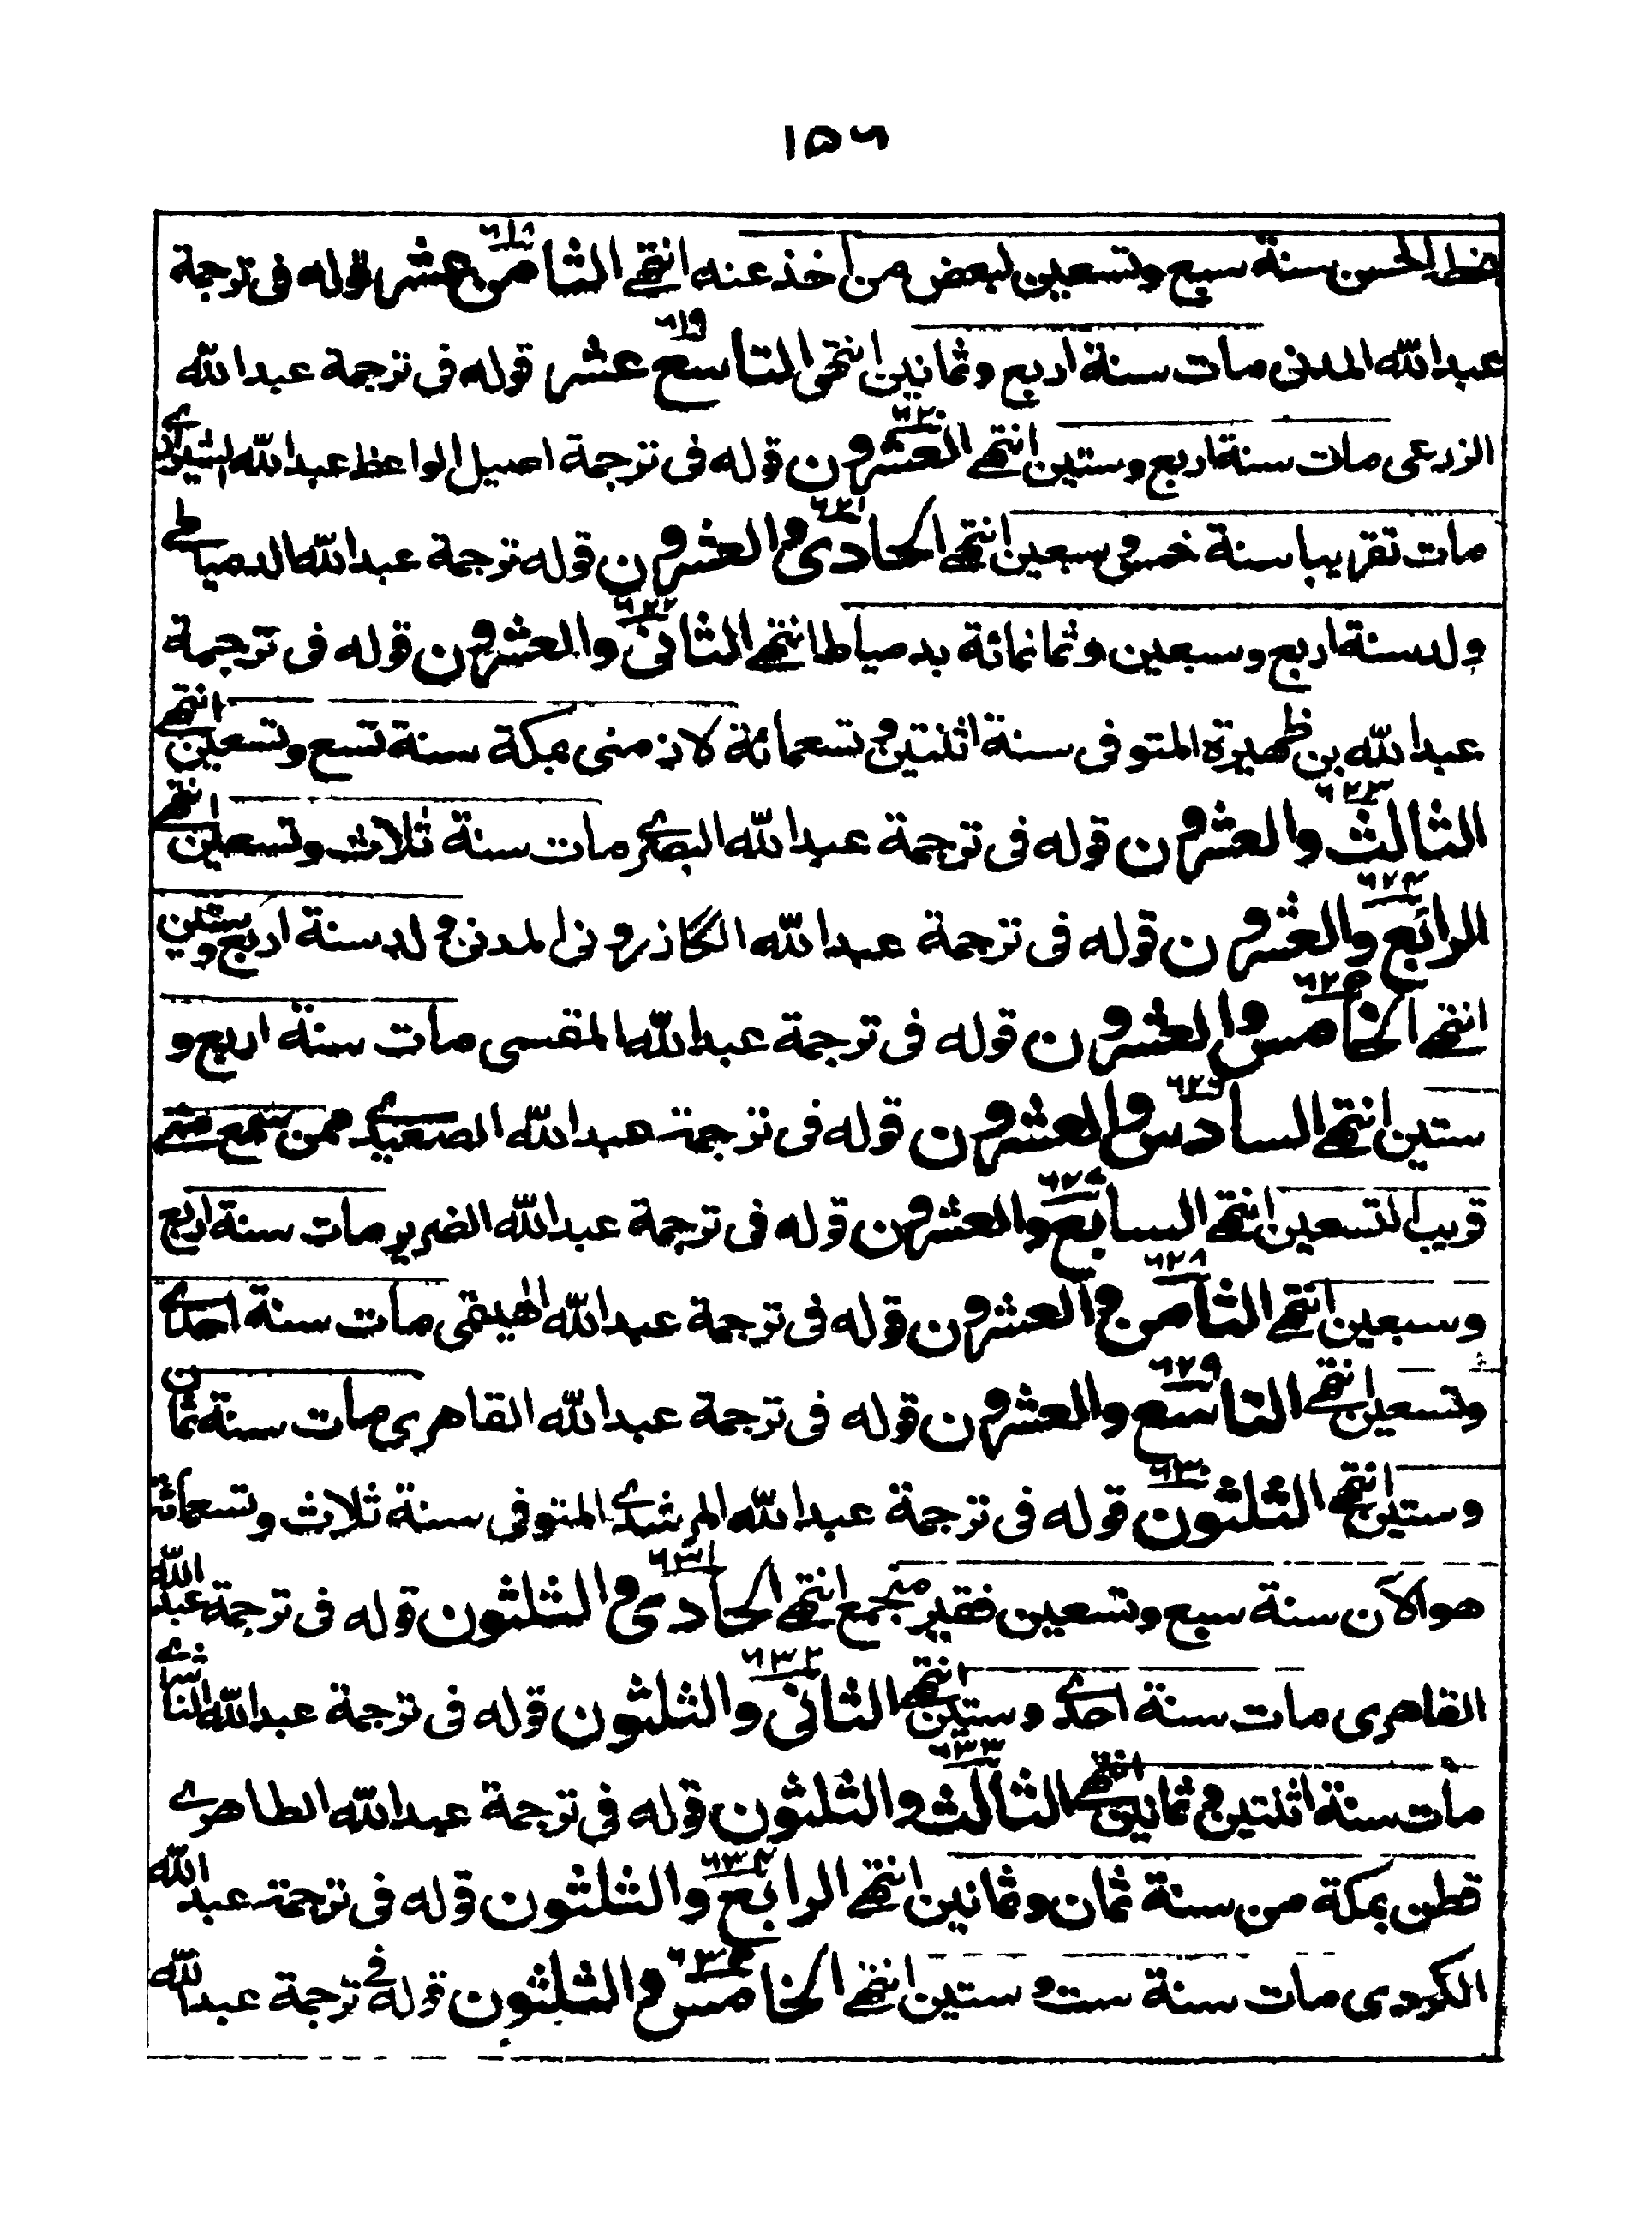 ١٥٦
بخط الحسن سنة سبع وتسعين لبعض من اخذ عنه انتهے الثامن عشر ٦١٨ قوله فى ترجمة
عبد الله المدنى مات سنة اربع وثمانين انتهى التاسع عشر ٦١٩ قوله فى ترجمة عبد الله
الزرعى مات سنة اربع وستين انتهے العشرون ٦٢٠ قوله فى ترجمة اصيل الواعظ عبد الله الشيرازے
مات تقريبا سنة خمس وسبعين انتهے الحادى والعشرون ٦٢١ قوله ترجمة عبد الله الدمياطے
ولد سنة اربع وسبعين وثمانمائة بدمياط انتهے الثانى والعشرون ٦٢٢ قوله فى ترجمة
عبد الله بن ظهيرة المتوفى سنة اثنتين وتسعمائة لازمنى بمكة سنة تسع وتسعين انتهے
الثالث والعشرون ٦٢٣ قوله فى ترجمة عبد الله البصكرے مات سنة ثلاث وتسعين انتهے
الرابع والعشرون ٦٢٤ قوله فى ترجمة عبد الله الكازرونى المدنى ولد سنة اربع وستين
انتهے الخامس والعشرون ٦٢٥ قوله فى ترجمة عبد الله المقسى مات سنة اربع و
ستين انتهے السادس والعشرون ٦٢٦ قوله فى ترجمة عبد الله الصعيدے ممن سمع منے
قريب التسعين انتهے السابع والعشرون ٦٢٧ قوله فى ترجمة عبد الله الضرير مات سنة اربع
وسبعين انتهے الثامن والعشرون ٦٢٨ قوله فى ترجمة عبد الله الهيتمى مات سنة احدے
وتسعين انتهے التاسع والعشرون ٦٢٩ قوله فى ترجمة عبد الله القاهرى مات سنة ثمان
وستين انتهے الثلثون ٦٣٠ قوله فى ترجمة عبد الله المرشدے المتوفى سنة ثلاث وتسعمائة
هو الآن سنة سبع وتسعين فقير منجمع انتهے الحادى والثلثون ٦٣١ قوله فى ترجمة عبد الله
القاهرى مات سنة احدے وستين انتهے الثانى والثلثون ٦٣٢ قوله فى ترجمة عبد الله الناشرے
مات سنة اثنتين وثمانين انتهے الثالث والثلثون ٦٣٣ قوله فى ترجمة عبد الله الطاهرے
قطن بمكة من سنة ثمان وثمانين انتهے الرابع والثلثون ٦٣٤ قوله فى ترجمة عبد الله
الكردى مات سنة ست وستين انتهے الخامس والثلثون ٦٣٥ قوله فى ترجمة عبد الله